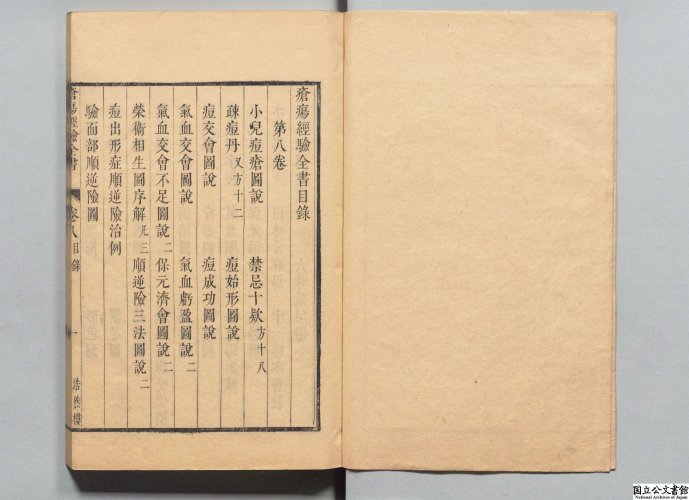 瘡瘍經驗全書目錄
第八卷
小兒痘瘡圖說 禁忌十欵方十八
疎痘丹又方十二 痘始形圖說
痘交會圖說 痘成功圖說
氣血交會圖說 氣血虧盈圖說二
氣血交會不足圖說二 保元濟會圖說二
榮衞相生圖序解 順逆險三法圖說二
痘出形症順逆險治例
驗面部順逆險圖
瘡瘍經驗全書 卷八目錄 一 浩然樓
国立公文書館
National Archives of Japan